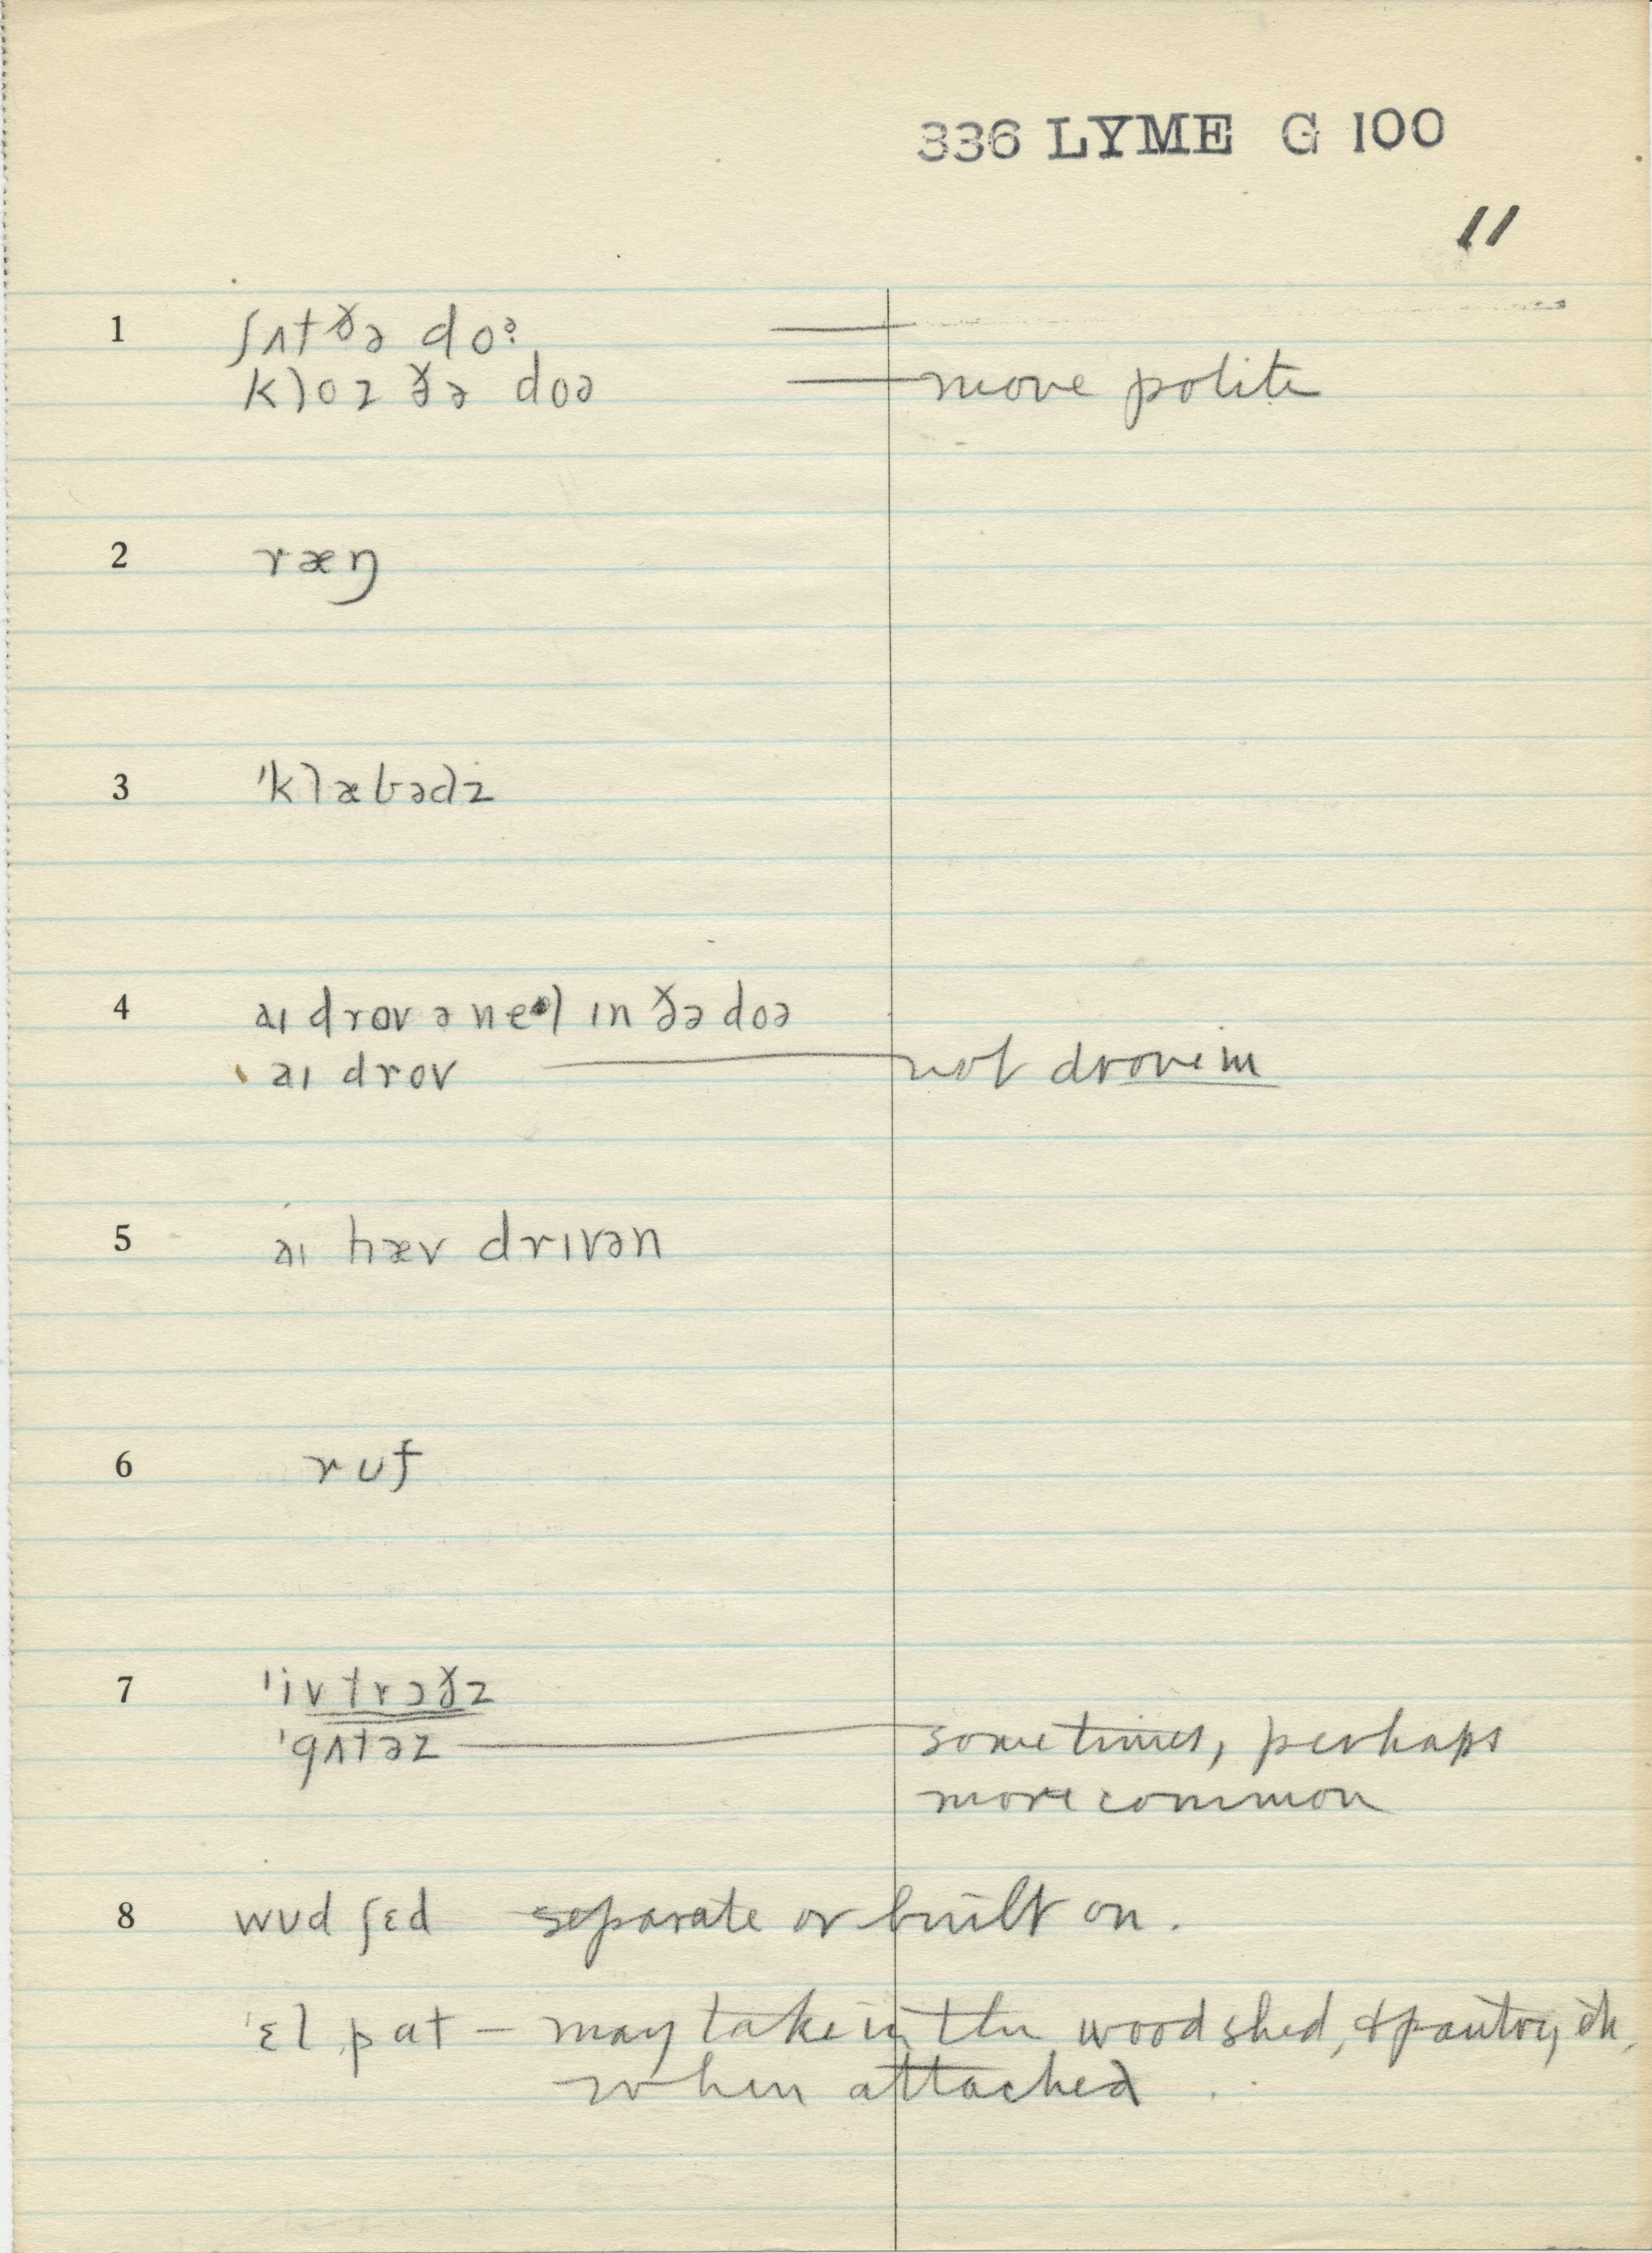 336 LYME G 100
11
1 ʃʌt ðə doᵊ
kloz ðə doə — more polite
2 ræŋ
3 ˈklæbədz
4 aɪ drov ə nel ɪn ðə doə
aɪ drov — not drove in
5 aɪ hæv drɪvən
6 ruf
7 ˈivtrɔðz
ˈgʌtəz — sometimes, perhaps
more common
8 wud ʃɛd separate or built on.
ˈɛl pat — may take in the woodshed, & pantry, etc,
when attached